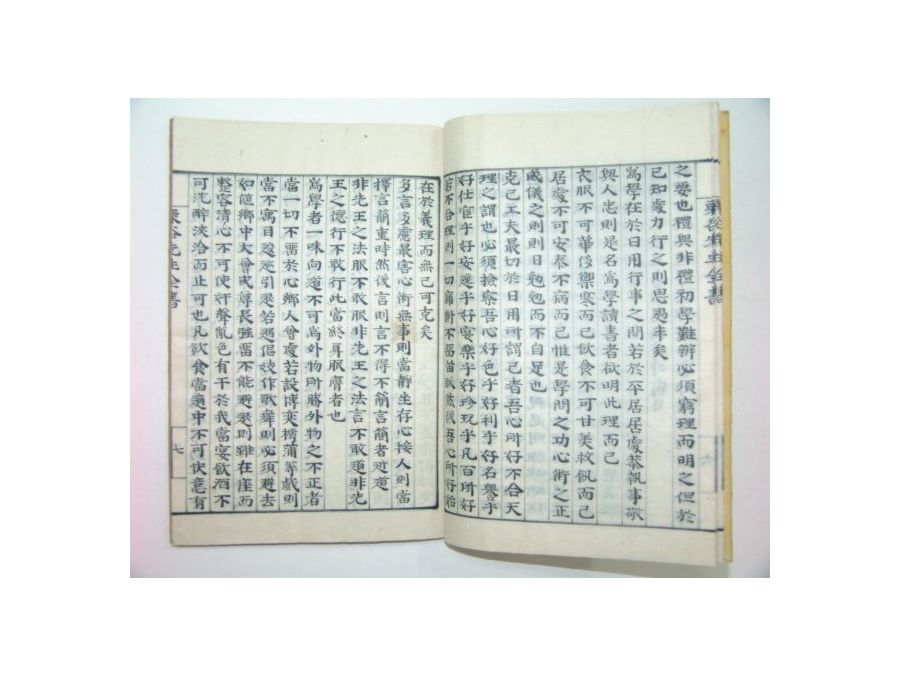 栗谷先生全書
六
之要也禮與非禮初學難辨必須窮理而明之但於
已知處力行之則思過半矣
爲學在於日用行事之間若於平居居處恭執事敬
與人忠則是名爲學讀書者欲明此理而已
衣服不可華侈禦寒而已飮食不可甘美救飢而已
居處不可安泰不病而已惟是學問之功心術之正
威儀之則則日勉勉而不自足也
克己工夫最切於日用所謂己者吾心所好不合天
理之謂也必須檢察吾心好色乎好利乎好名譽乎
好仕宦乎好安逸乎好宴樂乎好珍玩乎凡百所好
若不合理則一切痛斷不留苗脈然後吾心所好始
在於義理而無己可克矣
多言多慮最害心術無事則當靜坐存心接人則當
擇言簡重時然後言則言不得不簡言簡者近道
非先王之法服不敢服非先王之法言不敢道非先
王之德行不敢行此當終身服膺者也
爲學者一味向道不可爲外物所勝外物之不正者
當一切不留於心鄕人會處若設博奕樗蒲等戱則
當不寓目逡巡引退若遇倡妓作歌舞則必須避去
如値鄕中大會或尊長强留不能避退則雖在座而
整容淸心不可使奸聲亂色有干於我當宴飮酒不
可沈醉浹洽而止可也凡飮食當適中不可快意有
栗谷先生全書
七